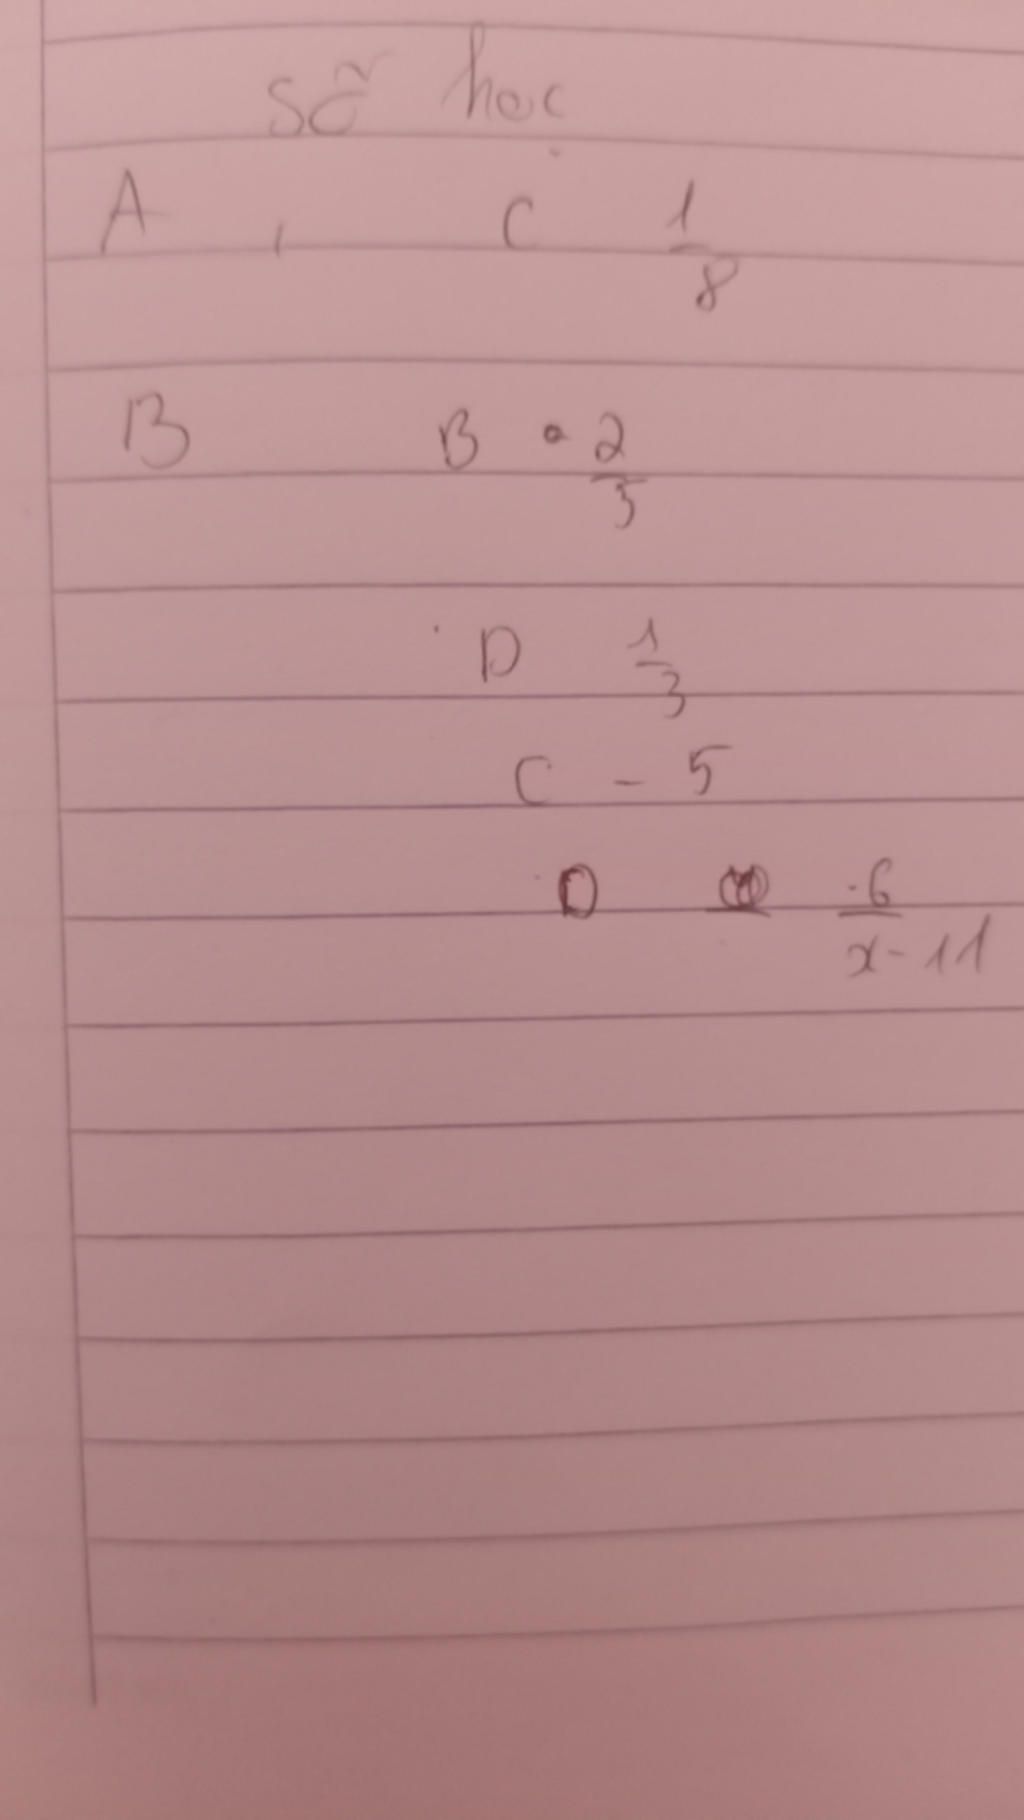 Số học
A , C 1/8
B B 2/5
D 1/3
C - 5
D -6/x-11